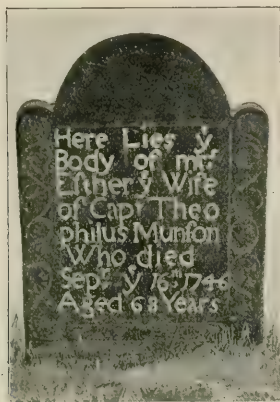 Here Lies yͤ
Body of mrˢ
Eſther yͤ Wife
of Capᵗ Theo
philus Munſon
Who died
Sepʳ yͤ 16ᵗʰ 1746
Aged 68 Years